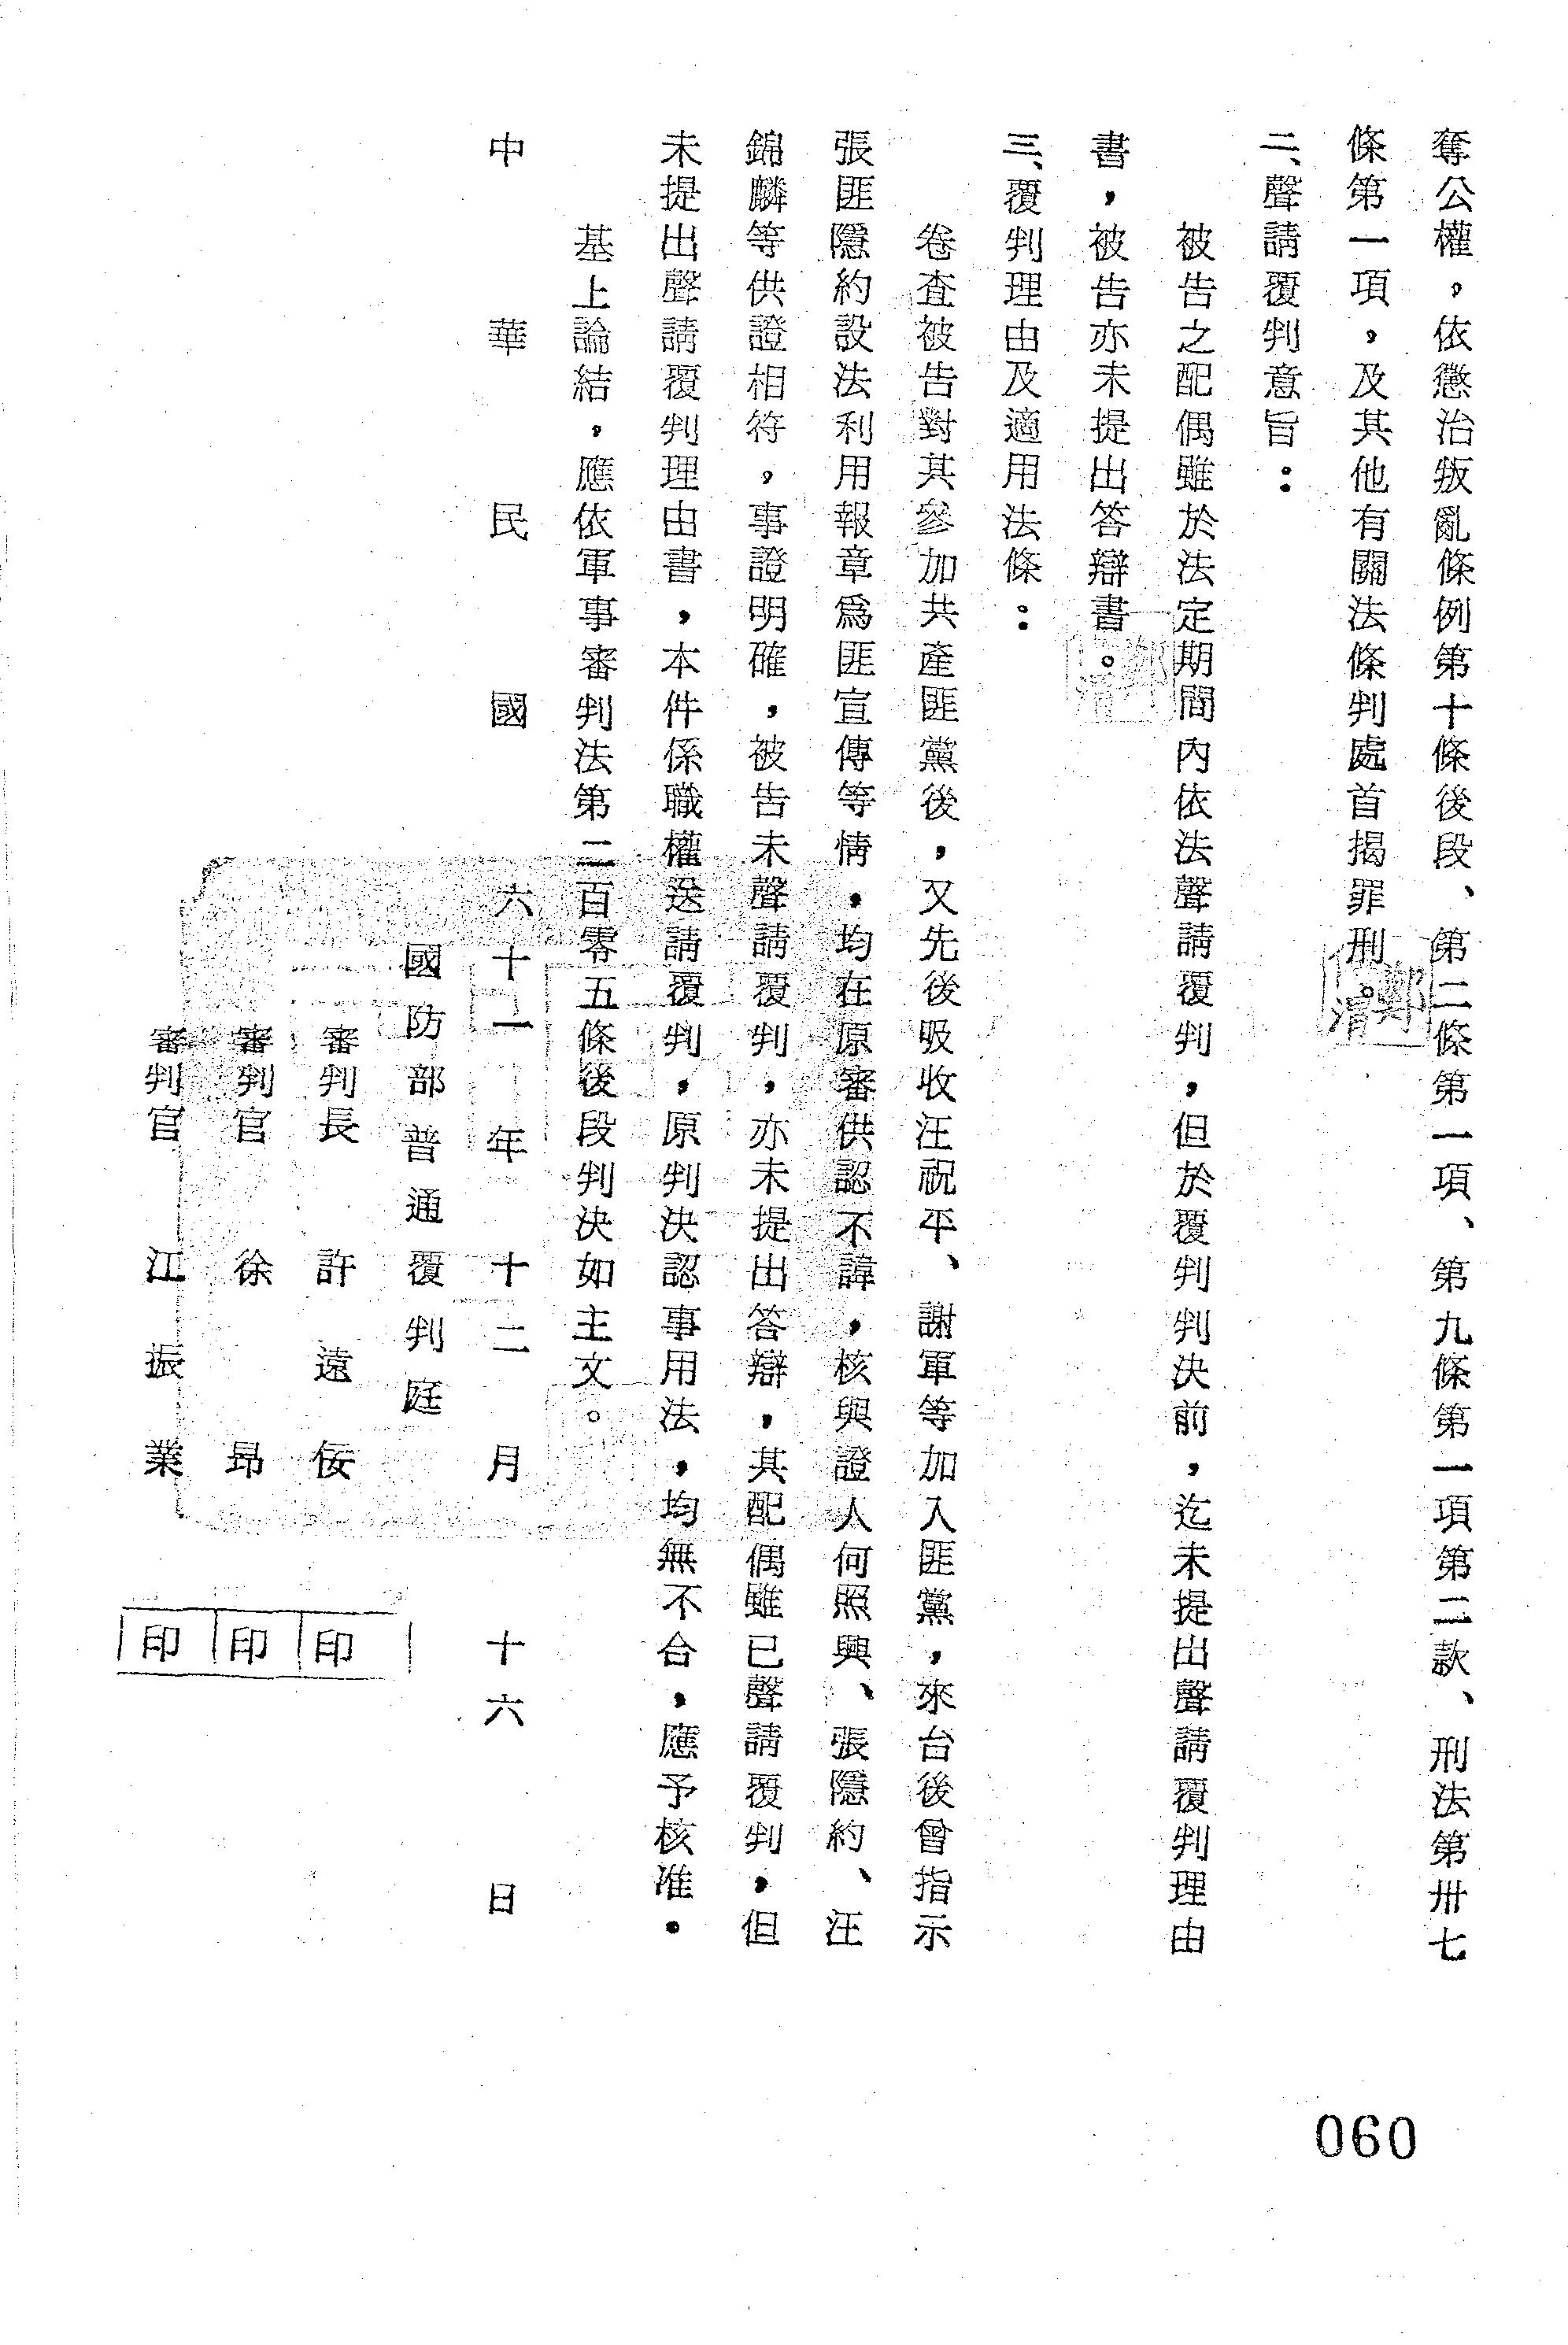 奪公權，依懲治叛亂條例第十條後段、第二條第一項、第九條第一項第二款、刑法第卅七
條第一項，及其他有關法條判處首揭罪刑。
二、聲請覆判意旨：
被告之配偶雖於法定期間內依法聲請覆判，但於覆判判決前，迄未提出聲請覆判理由
書，被告亦未提出答辯書。
三、覆判理由及適用法條：
卷查被告對其參加共產匪黨後，又先後吸收汪祝平、謝軍等加入匪黨，來台後曾指示
張匪隱約設法利用報章為匪宣傳等情，均在原審供認不諱，核與證人何照興、張隱約、汪
錦麟等供證相符，事證明確，被告未聲請覆判，亦未提出答辯，其配偶雖已聲請覆判，但
未提出聲請覆判理由書，本件係職權送請覆判，原判決認事用法，均無不合，應予核准。
基上論結，應依軍事審判法第二百零五條後段判決如主文。
中華民國六十一年十二月十六日
國防部普通覆判庭
審判長 許遠佞 印
審判官 徐昂 印
審判官 江振業 印
060